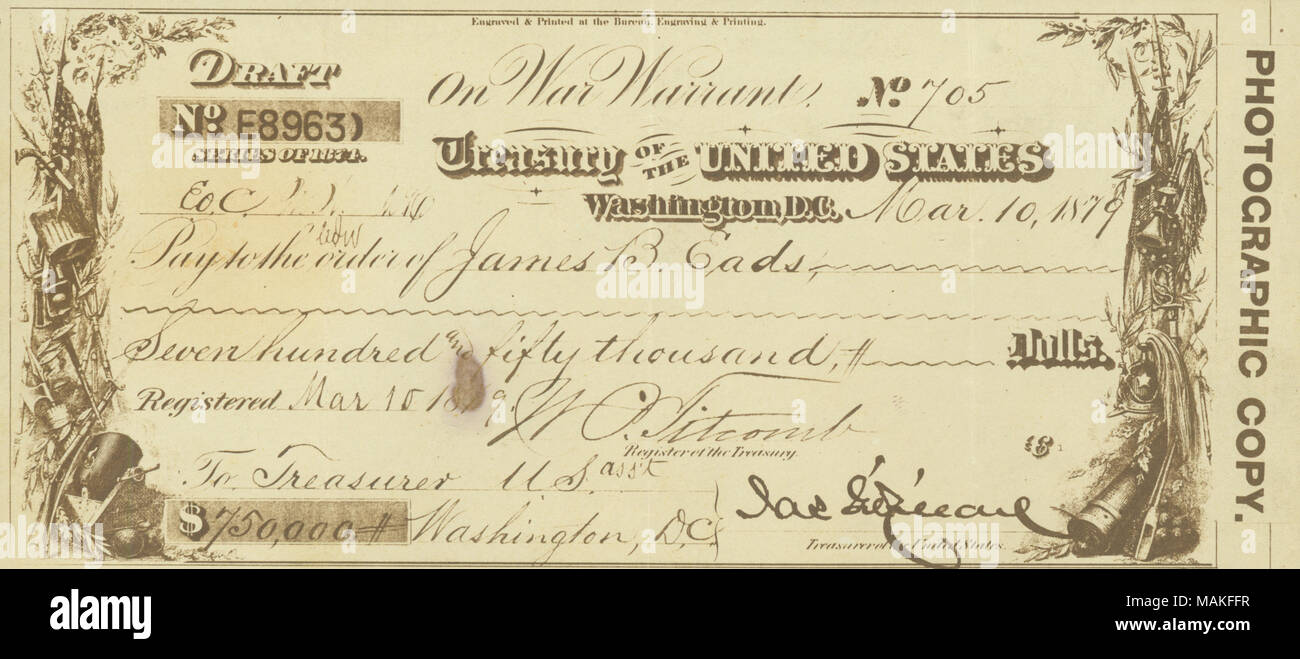 Engraved & Printed at the Bureau, Engraving & Printing.
DRAFT
No. E8963)
SERIES OF 1874.
On War Warrant, No. 705
Treasury OF THE UNITED STATES
Washington, D.C. Mar. 10, 1879
Pay to the order of James B. Eads,
Seven hundred and fifty thousand, # Dolls.
Registered Mar 10 1879
Register of the Treasury.
18
To Treasurer U S asst
$750,000 # Washington, D.C.
Treasurer of the United States.
PHOTOGRAPHIC COPY.
alamy
a
alamy stock photo
MAKFFR
www.alamy.com